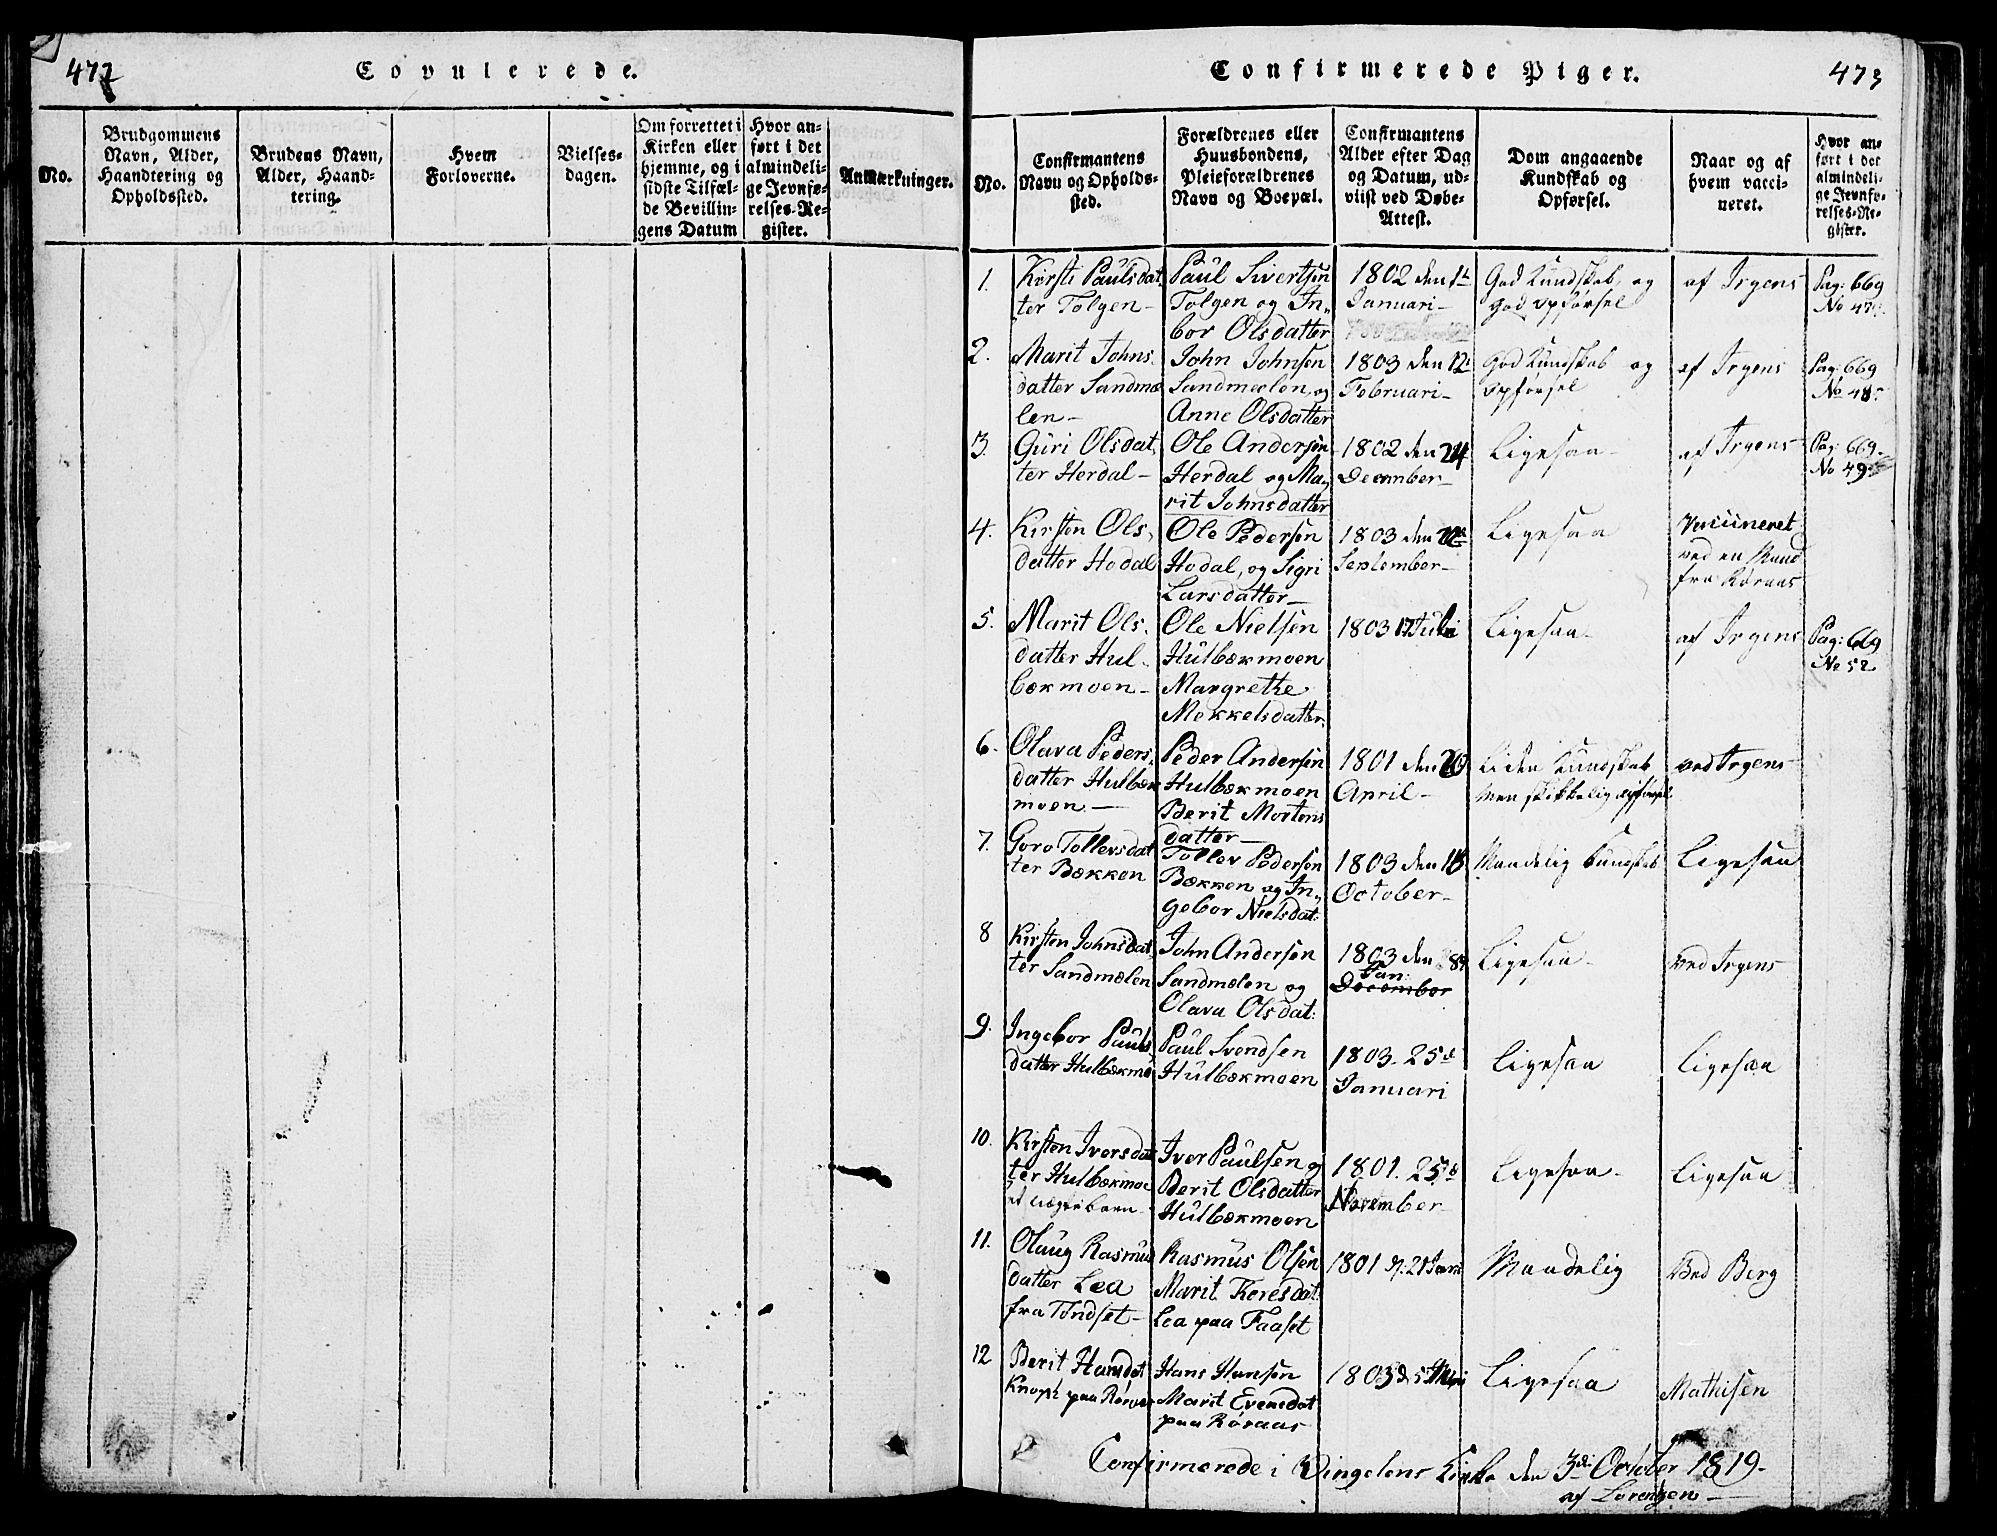 477
Copulerede.
No.
Brudgommens
Navn, Alder,
Haandtering og
Opholdssted.
Brudens Navn,
Alder, Haand-
tering.
Hvem
Forloverne.
Vielses-
dagen.
Om forrettet i
Kirken eller
hjemme, og i
sidste Tilfæl-
de Bevillin-
gens Datum
Hvor an-
ført i det
almindeli-
ge Jevnfø-
relses-Re-
gister.
Anmærkninger.
Confirmerede Piger.
473
No.
Confirmantens
Navn og Opholds-
sted.
Forældrenes eller
Huusbondens,
Pleieforældrenes
Navn og Boepæl.
Confirmantens
Alder efter Dag
og Datum, ud-
viist ved Døbe-
Attest.
Dom angaaende
Kundskab og
Opførsel.
Naar og af
hvem vacci-
neret.
Hvor an-
ført i det
almindeli-
ge Jevnfø-
relses-Re-
gister.
1.
Kirsti Paulsdat,
ter Tolgen-
Paul Sivertsen
Tolgen og In,,
bor Olsdatter
1802 den 1te
Januari-
God Kundskab, og
god Opførsel
af Irgens
Pag: 669
No 47
2.
Marit Johns,
datter Sandmæ
len-
John Johnsen
Sandmælen, og
Anne Olsdatter
1803 den 12
Februari-
God Kundskab og
Opførsel
af Irgens
Pag: 669
No 48
3.
Guri Olsdat,
ter Herdal-
Ole Andersen
Herdal og Ma,
rit Johnsdatter
1802 den 24
December-
Ligesaa-
af Irgens
Pag: 669.
No 49
4.
Kirsten Ols,
datter Hodal
Ole Pedersen
Hodal, og Sigri
Larsdatter-
1803 den
September-
Ligesaa
Vacineret
ved en Mand
fra Røraas
5.
Marit Ols,
datter Hul,
bækmoen-
Ole Nielsen
Hulbækmoen
Margrethe
Mekkelsdatter.
1803 17 Juli
Ligesaa-
af Irgens
Pag: 669
No 52
6.
Olava Peders,
datter Hulbæk
moen-
Peder Andersen
Hulbækmoen
Berit Mortens
datter-
1801 den
April-
Liden Kundskab
men skikkelig Opførsel
ved Irgens
7.
Goro Tollevsdat
ter Bækken
Tollev Pedersen
Bækken og In,,
gebor Nielsdat:
1803 den
October-
Maadelig Kundskab
Ligesaa
8
Kirsten Johnsdat,
ter Sandmælen
John Andersen
Sandmælen og
Olava Olsdat:
1803 den
Jan:
December
Ligesaa-
ved Irgens
9.
Ingebor Pauls,
datter Hulbækmo
Paul Svendsen
Hulbækmoen
1803. 25de
Januari
Ligesaa
Ligesaa
10.
Kirsten Iversdat
ter Hulbækmoe
et uægte barn-
Iver Paulsen og
Berit Olsdatter
Hulbækmoen
1801. 25de
November
Ligesaa-
Ligesaa
11.
Olaug Rasmus
datter Lea
fra Tøndset-
Rasmus Olsen
Marit Keresdat:
Lea paa Faaset
1801
Maadelig
Ved Berg
12
Berit Hansdat
Knoph paa Røraas
Hans Hansen
Marit Evensdat
paa Røraas
1803 d. 5
Ligesaa
Mathisen
Confirmerede i Vingelens Kirke den 3die October 1819-
af Lorentzen-